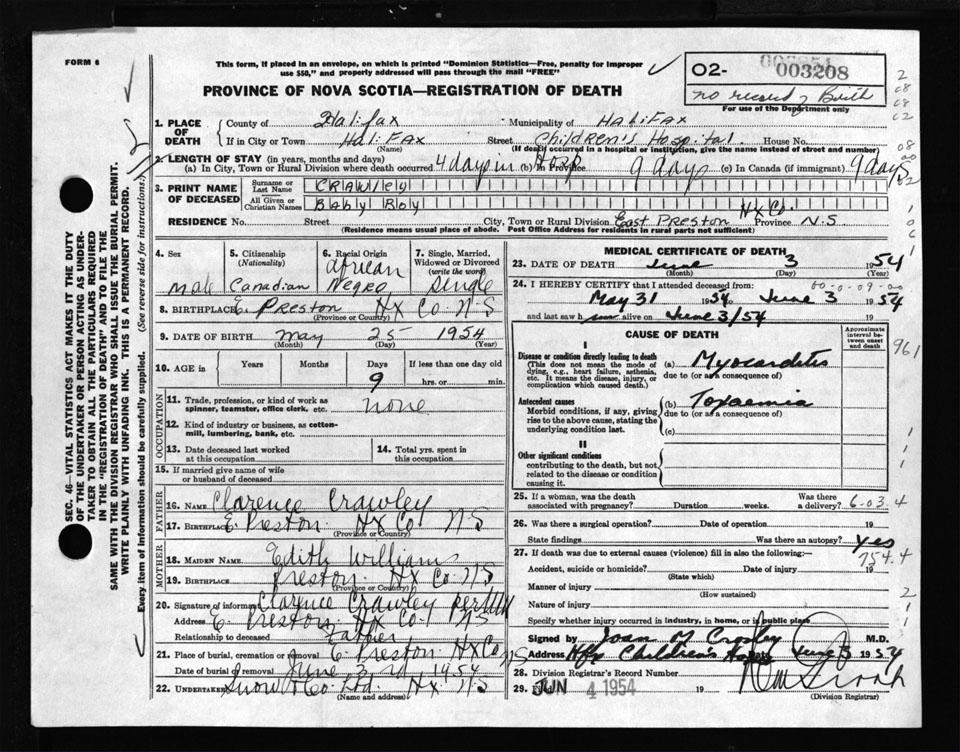 FORM 6
This form, if placed in an envelope, on which is printed "Dominion Statistics—Free, penalty for improper
use $50," and properly addressed will pass through the mail "FREE"
PROVINCE OF NOVA SCOTIA—REGISTRATION OF DEATH
O2- 003208
no record of Birth
For use of the Department only
1. PLACE OF DEATH
County of Halifax Municipality of Halifax
If in City or Town Halifax (Name) Street Children's Hospital. House No.
(If death occurred in a hospital or institution, give the name instead of street and number)
2. LENGTH OF STAY (in years, months and days)
(a) In City, Town or Rural Division where death occurred 4 days in Hosp (b) In Province 9 days (c) In Canada (if immigrant) 9 days
3. PRINT NAME OF DECEASED
Surname or Last Name CRAWLEY
All Given or Christian Names BABY BOY
RESIDENCE No. Street City, Town or Rural Division East Preston Hx Co. Province N.S.
(Residence means usual place of abode. Post Office Address for residents in rural parts not sufficient)
4. Sex Male
5. Citizenship (Nationality) Canadian
6. Racial Origin African Negro
7. Single, Married, Widowed or Divorced (write the word) Single
8. BIRTHPLACE E. Preston Hx Co. N.S
(Province or Country)
9. DATE OF BIRTH May 25 1954
(Month) (Day) (Year)
10. AGE in Years Months Days 9 If less than one day old hrs. or min.
OCCUPATION
11. Trade, profession, or kind of work as spinner, teamster, office clerk, etc. none
12. Kind of industry or business, as cotton-mill, lumbering, bank, etc.
13. Date deceased last worked at this occupation
14. Total yrs. spent in this occupation
15. If married give name of wife or husband of deceased
FATHER
16. NAME Clarence Crawley
17. BIRTHPLACE E Preston Hx Co NS
(Province or Country)
MOTHER
18. MAIDEN NAME Edith Williams
19. BIRTHPLACE Preston. Hx Co. NS
(Province or Country)
20. Signature of informant Clarence Crawley per
Address E. Preston. Hx Co. NS
Relationship to deceased Father
21. Place of burial, cremation or removal E Preston Hx Co NS
Date of burial or removal June 3rd 1954
22. Undertaker Snow & Co Ltd. Hx. NS
(Name and address)
MEDICAL CERTIFICATE OF DEATH
23. DATE OF DEATH June 3 1954
(Month) (Day) (Year)
24. I HEREBY CERTIFY that I attended deceased from:
May 31 1954 to June 3 1954
and last saw him alive on June 3/54 19
CAUSE OF DEATH
Approximate interval between onset and death
I
Disease or condition directly leading to death
(This does not mean the mode of dying, e.g., heart failure, asthenia, etc. It means the disease, injury, or complication which caused death.)
(a) Myocarditis
due to (or as a consequence of)
Antecedent causes
Morbid conditions, if any, giving rise to the above cause, stating the underlying condition last.
(b) Toxaemia
due to (or as a consequence of)
(c)
II
Other significant conditions
contributing to the death, but not related to the disease or condition causing it.
25. If a woman, was the death associated with pregnancy? Duration weeks. Was there a delivery? 6-03.4
26. Was there a surgical operation? Date of operation 19
State findings Was there an autopsy? Yes
754.4
27. If death was due to external causes (violence) fill in also the following:—
Accident, suicide or homicide? Date of injury 19
(State which)
Manner of injury
(How sustained)
Nature of injury
Specify whether injury occurred in industry, in home, or in public place
Signed by Joan M Crosby M.D.
Address Hfx Children's Hosp Date June 3 1954
28. Division Registrar's Record Number
29. JUN 4 1954 19
(Division Registrar)
SEC. 46—VITAL STATISTICS ACT MAKES IT THE DUTY
OF THE UNDERTAKER OR PERSON ACTING AS UNDER-
TAKER TO OBTAIN ALL THE PARTICULARS REQUIRED
IN THE "REGISTRATION OF DEATH" AND TO FILE THE
SAME WITH THE DIVISION REGISTRAR WHO SHALL ISSUE THE BURIAL PERMIT.
WRITE PLAINLY WITH UNFADING INK. THIS IS A PERMANENT RECORD.
Every item of information should be carefully supplied. (See reverse side for instructions.)
961